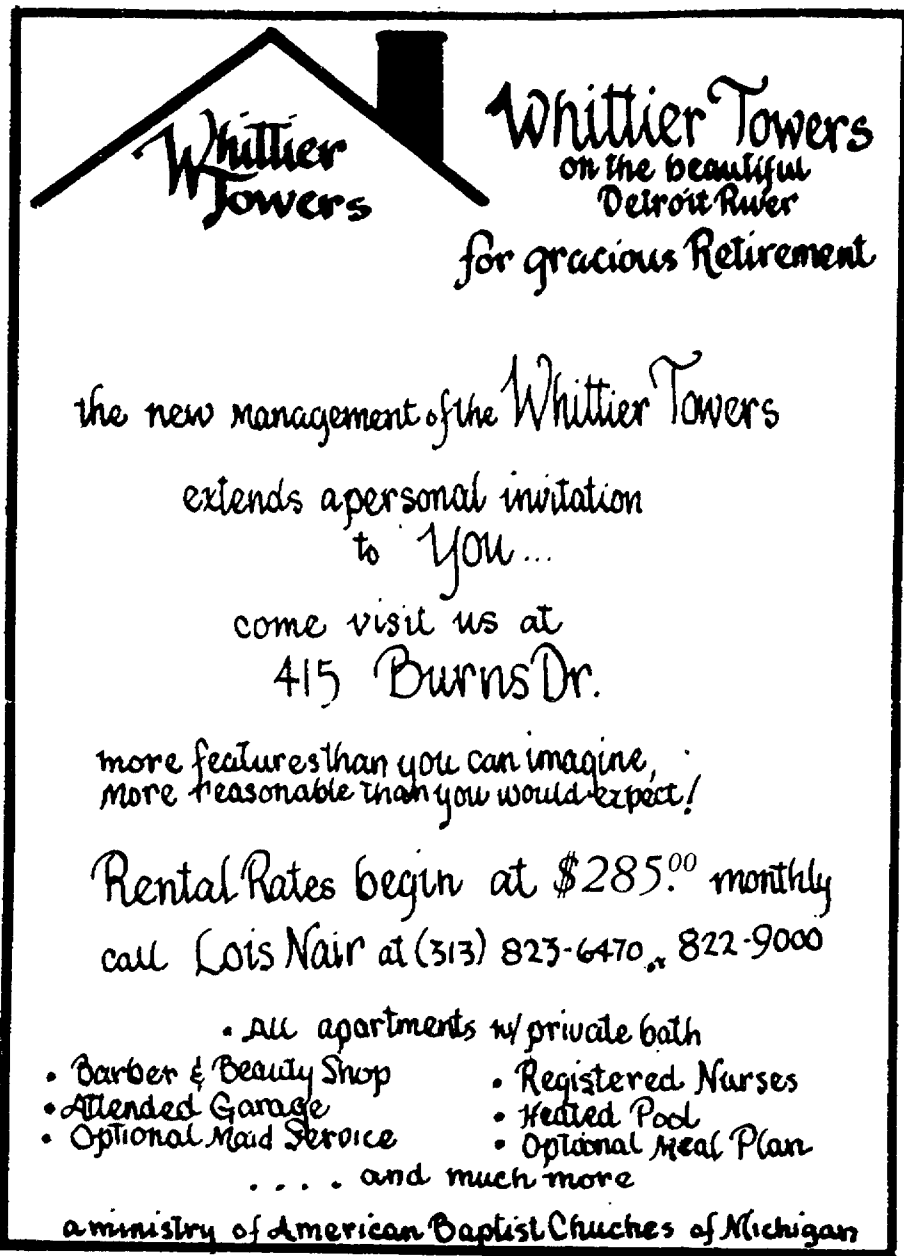 Whittier
Towers
Whittier Towers
on the beautiful
Detroit River
for gracious Retirement
the new management of the Whittier Towers
extends a personal invitation
to You...
come visit us at
415 Burns Dr.
more features than you can imagine,
more reasonable than you would expect!
Rental Rates begin at $285.00 monthly
call Lois Nair at (313) 823-6470 or 822-9000
• All apartments w/ private bath
• Barber & Beauty Shop
• Attended Garage
• Optional Maid Service
• Registered Nurses
• Heated Pool
• Optional Meal Plan
. . . . and much more
a ministry of American Baptist Chuches of Michigan